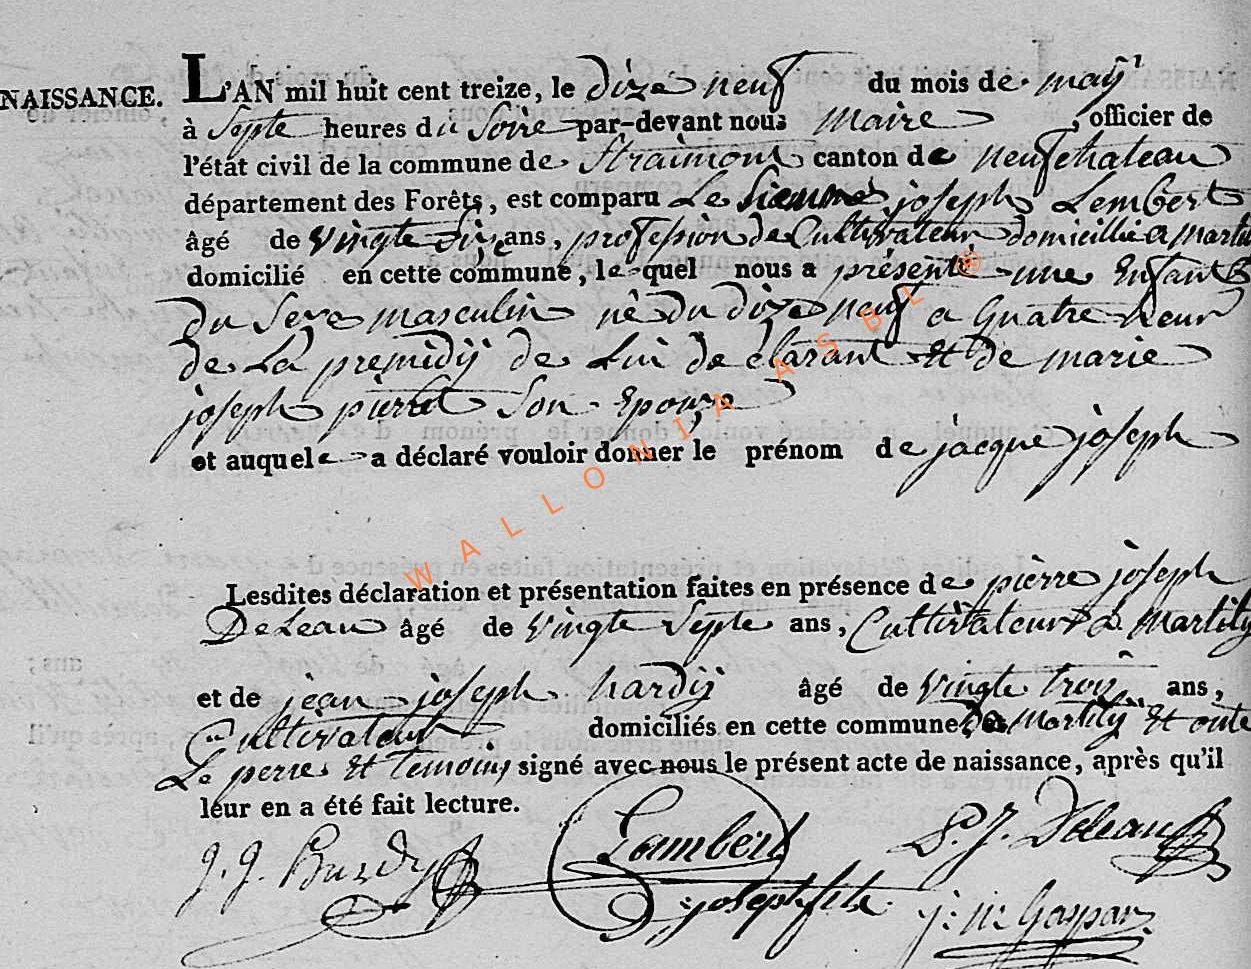 NAISSANCE. L'AN mil huit cent treize, le dize neuf du mois de may
à Septe heures du Soire par-devant nous maire , officier de
l'état civil de la commune de Straimont canton de neufchateau
département des Forêts, est comparu Le Sieur joseph Lembert
âgé de vingte Six ans, profession de Cultivateur domicillié a Martil
domicilié en cette commune, le quel nous a présenté une Enfant
du Sexe masculin né du dize neuf a Quatre heur
de La premidij de Lui déclarant Et de marie
joseph pierret Son Epouse
et auquel a déclaré vouloir donner le prénom de jacque joseph
Lesdites déclaration et présentation faites en présence de pierre joseph
DeLeau âgé de vingte Septe ans, Cultivateur Martilÿ
et de jean joseph hardÿ âgé de vingte trois ans,
Cultivateur domiciliés en cette commune de Martilÿ Et onte
Le perre Et temoins signé avec nous le présent acte de naissance, après qu'il
leur en a été fait lecture.
J. J. Hardy Lambert P. J. Deleau
joseph
Gaspar
WALLONIA ASBL ®